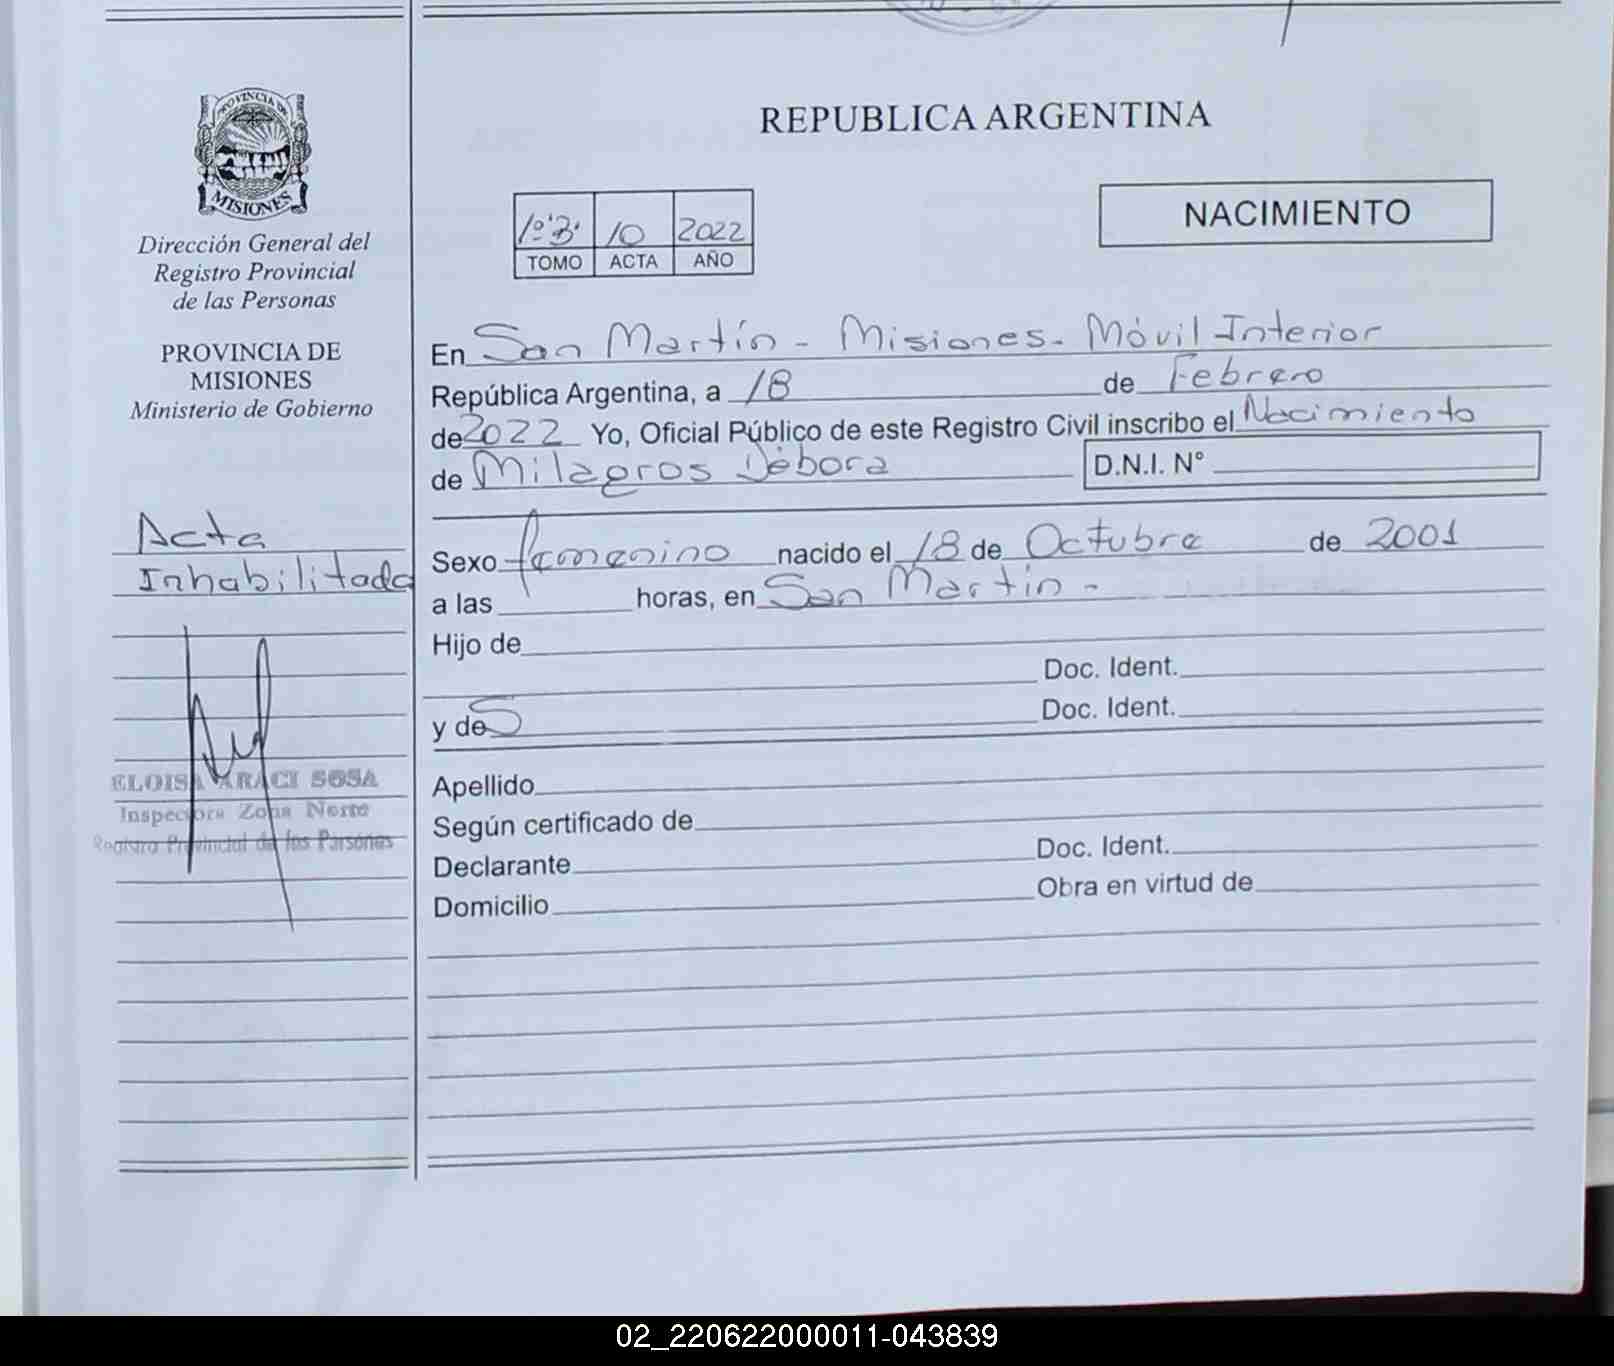 PROVINCIA DE
MISIONES
Dirección General del
Registro Provincial
de las Personas
PROVINCIA DE
MISIONES
Ministerio de Gobierno
Acta
Inhabilitada
ELOISA ARACI SOSA
Inspectora Zona Norte
Registro Provincial de las Personas
REPUBLICA ARGENTINA
1º"B" 10 2022
TOMO ACTA AÑO
NACIMIENTO
En San Martín - Misiones - Móvil Interior
República Argentina, a 18 de Febrero
de 2022 Yo, Oficial Público de este Registro Civil inscribo el Nacimiento
de Milagros Débora D.N.I. N°
Sexo femenino nacido el 18 de Octubre de 2001
a las horas, en San Martín -
Hijo de
Doc. Ident.
y de S Doc. Ident.
Apellido
Según certificado de
Declarante Doc. Ident.
Domicilio Obra en virtud de
02_220622000011-043839